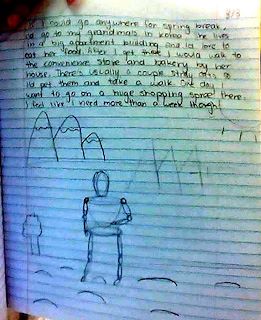 If I could go anywhere for spring break
I'd go to my grandma's in Korea. She lives
in a big apartment building and I'd love to
eat her food. After I get there I would walk to
the convenience store and bakery by her
house. There's usually a couple stray so
I'd pet them and take a walk. One day I
want to go on a huge shopping spree there.
I feel like I need more than a week though!